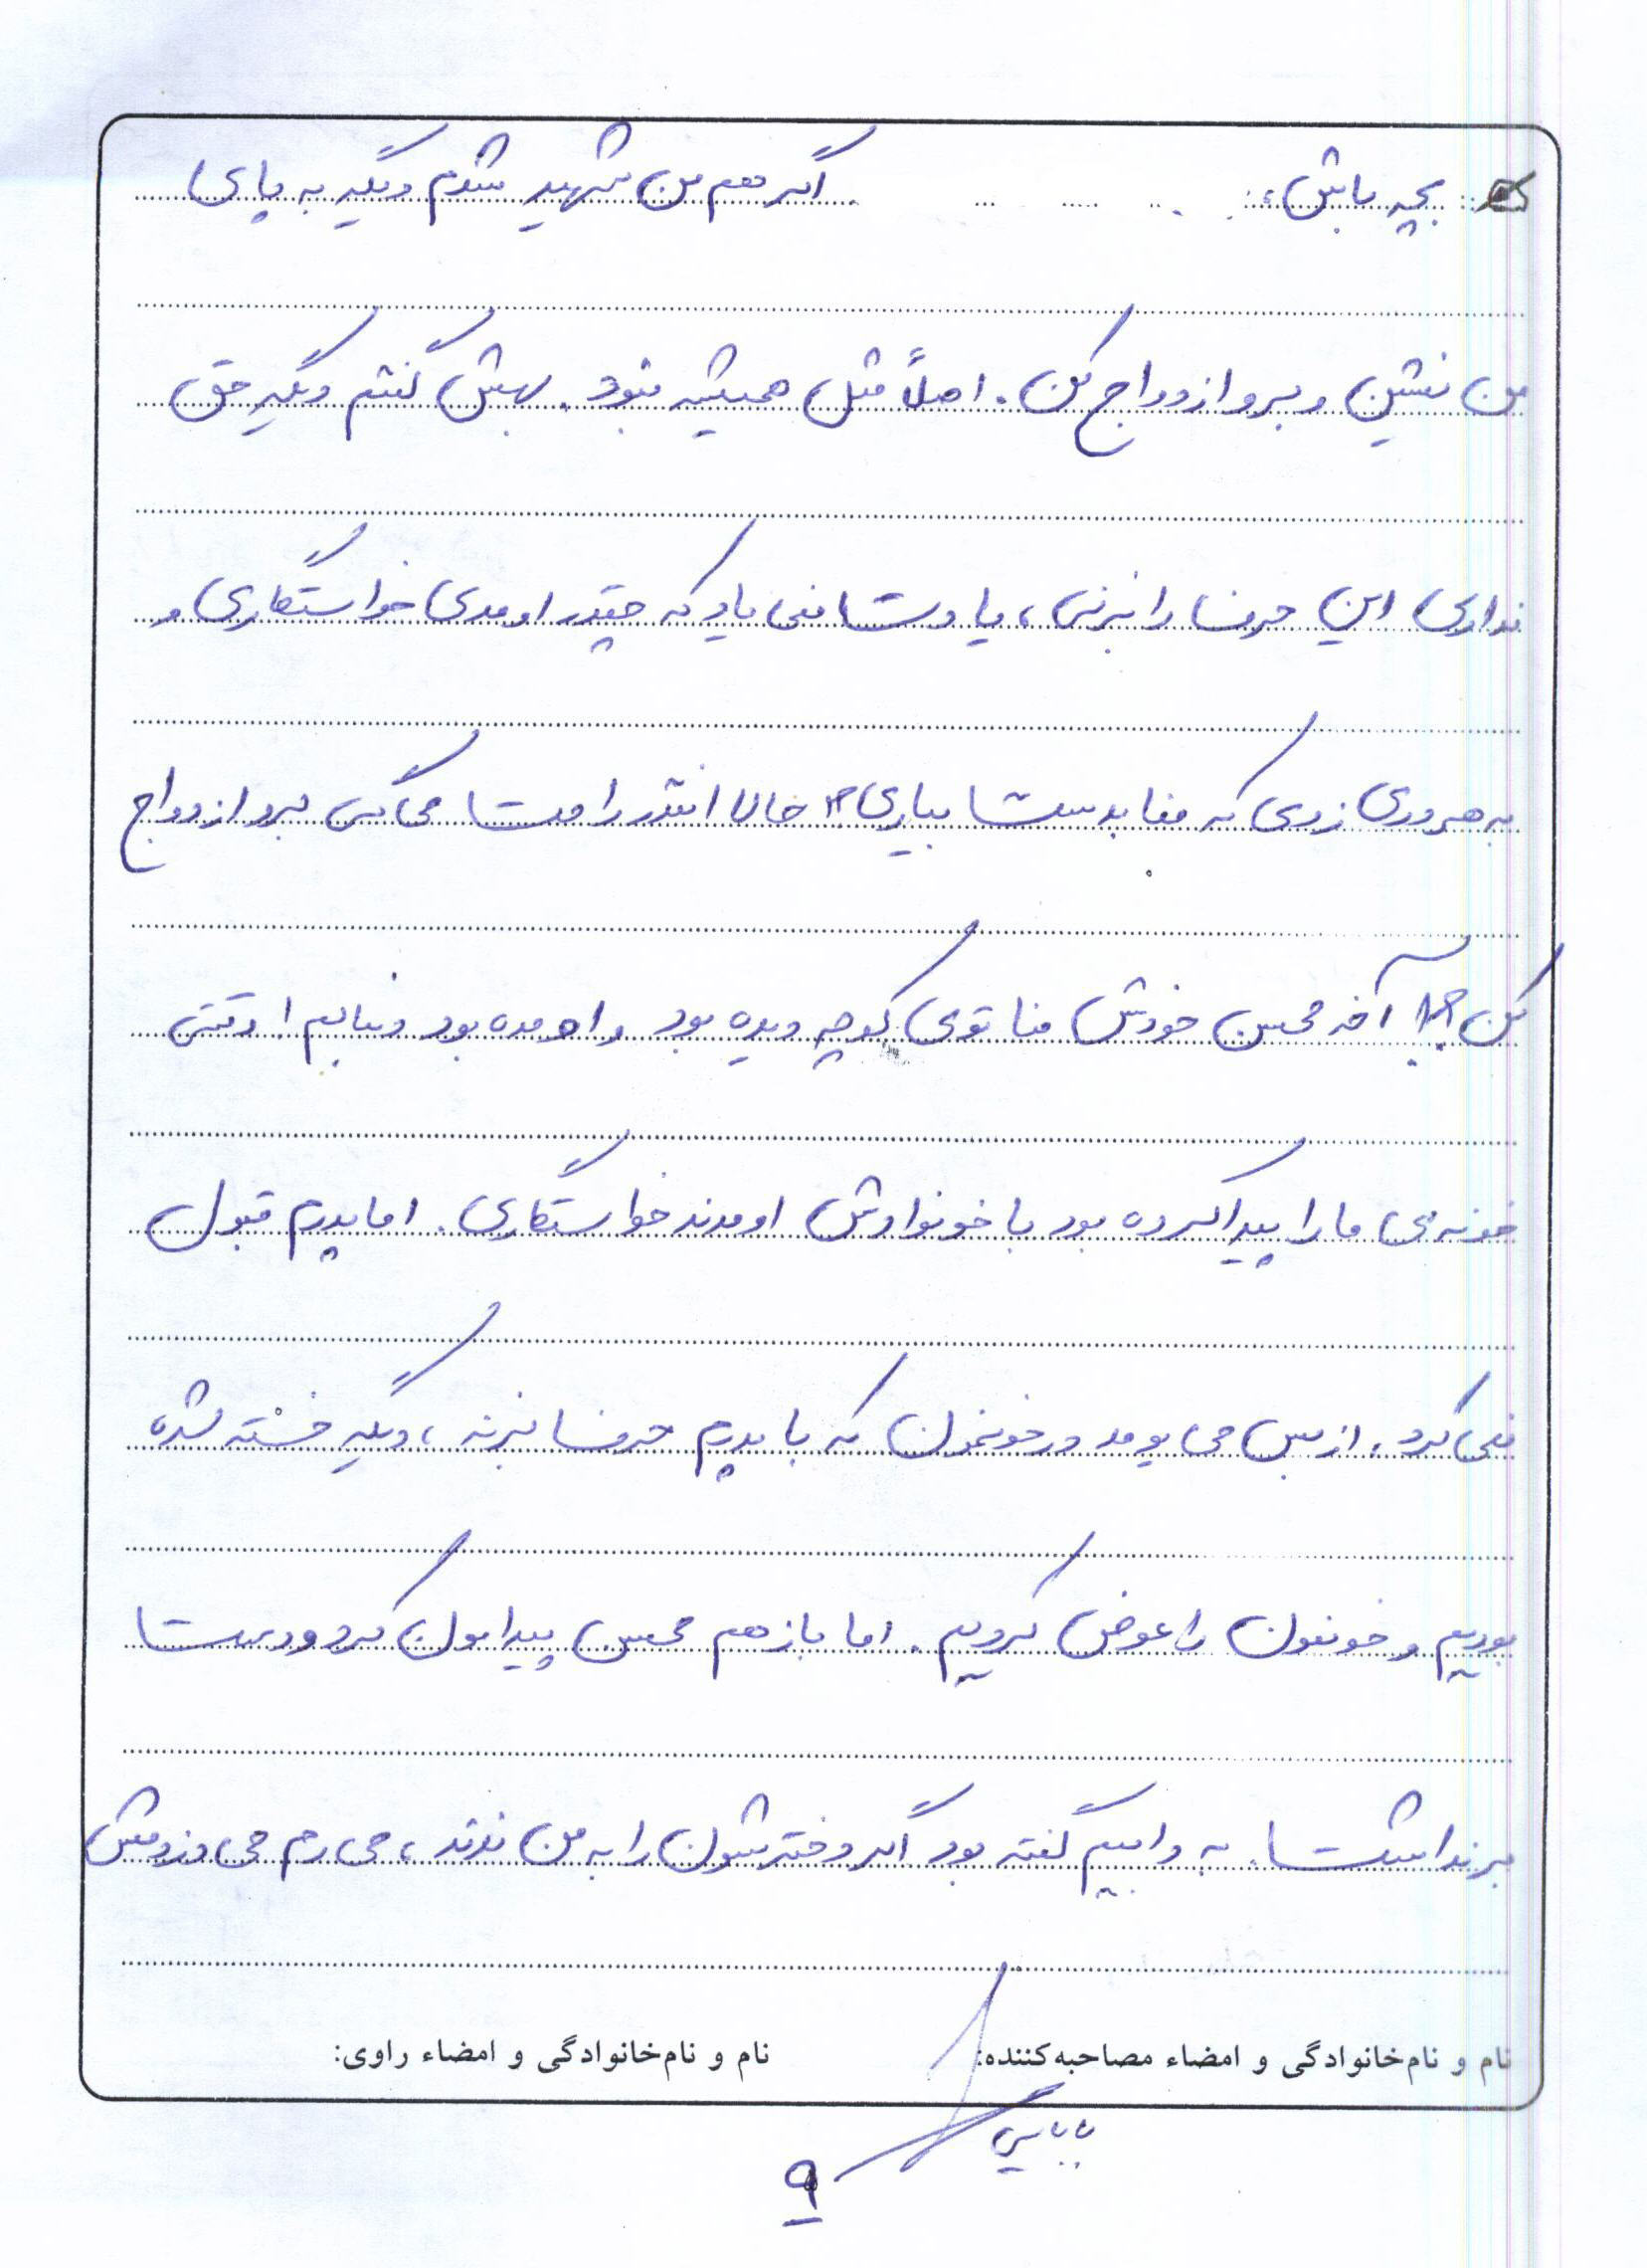 بچه باش، اگر هم من شهید شدم دیگه به پای
من نشین و برو ازدواج کن. اصلاً مثل همیشه نبود. بهش گفتم دیگه حق
نداری این حرفا را بزنی، یادت نمی یاد که چقدر اومدی خواستگاری و
به هر دری زدی که منا بدست بیاری؟! حالا انقدر راحت می گی برو ازدواج
کن؟!! آخه محسن خودش منا توی کوچه دیده بود و اومده بود دنبالم! وقتی
خونه ی ما را پیدا کرده بود با خونوادش اومدند خواستگاری. اما پدرم قبول
نمی کرد. از بس می یومد در خونمون که با پدرم حرف بزنه، دیگه خسته شده
بودیم و خونمون را عوض کردیم. اما باز هم محسن پیدامون کرد و دست
برنداشت. به داییم گفته بود اگر دخترشون را به من ندند، می رم می دزدمش
نام و نام‌خانوادگی و امضاء مصاحبه‌کننده: نام و نام‌خانوادگی و امضاء راوی:
بابایی
۹